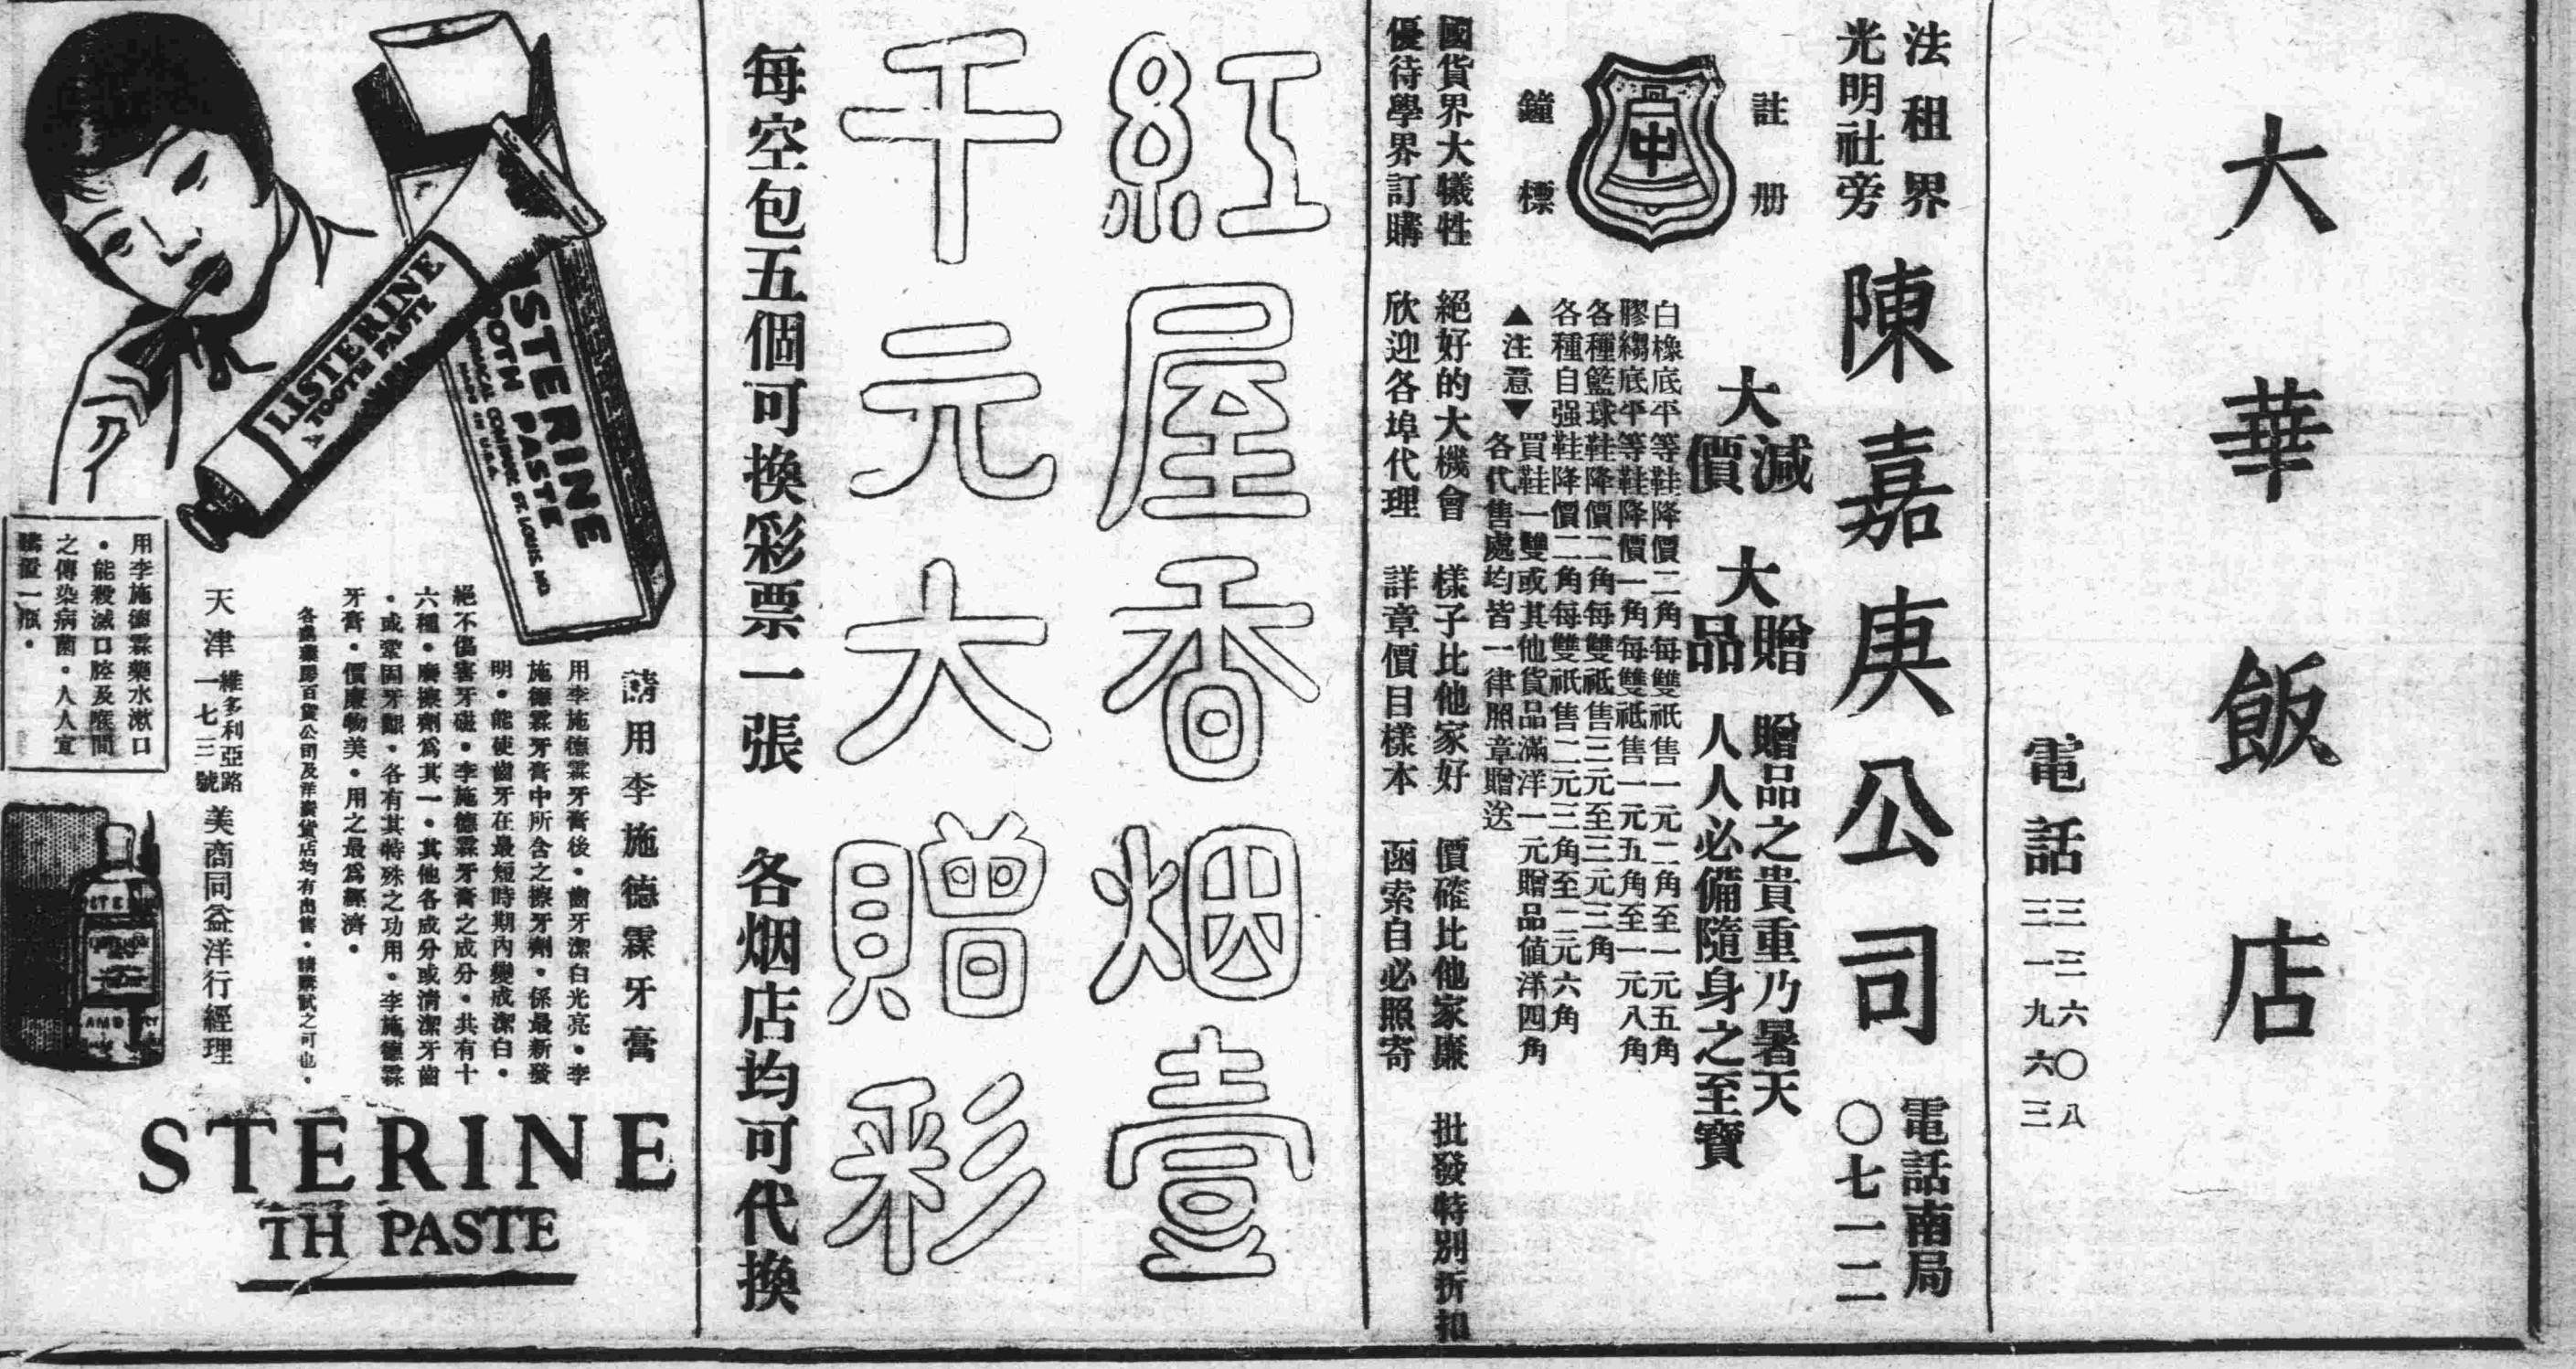 大華飯店
電話
三三六〇八
三一九六三
法租界
光明社旁
陳嘉庚公司
電話南局
〇七一二
大減價
大贈品
贈品之貴重乃暑天
人人必備隨身之至寶
註册
鐘標
中
白橡底平等鞋降價二角每雙祇售一元二角至一元五角
膠縐底平等鞋降價一角每雙祗售一元五角至一元八角
各種籃球鞋降價二角每雙祗售三元至三元三角
各種自强鞋降價二角每雙祇售二元三角至二元六角
▲注意▼
買鞋一雙或其他貨品滿洋一元贈品值洋四角
各代售處均皆一律照章贈送
國貨界大犧牲 絕好的大機會 樣子比他家好 價確比他家廉 批發特別折扣
優待學界訂購 欣迎各埠代理 詳章價目樣本 函索自必照寄
紅屋香烟壹
千元大贈彩
每空包五個可換彩票一張 各烟店均可代換
LISTERINE
TOOTH PASTE
STERINE
OOTH PASTE
MADE IN U.S.A.
請用李施德霖牙膏
用李施德霖牙膏後•齒牙潔白光亮•李
施德霖牙膏中所含之擦牙劑•係最新發
明•能使齒牙在最短時期內變成潔白•
絕不傷害牙磁•李施德霖牙膏之成分•共有十
六種•磨擦劑爲其一•其他各成分或清潔牙齒
•或鞏固牙齦•各有其特殊之功用•李施德霖
牙膏•價廉物美•用之最爲經濟•
各藥房百貨公司及洋廣貨店均有出售•請購試之可也•
天津
維多利亞路
一七三號
美商同益洋行經理
用李施德霖藥水漱口
•能殺滅口腔及喉間
之傳染病菌•人人宜
置一瓶•
STERINE
TH PASTE